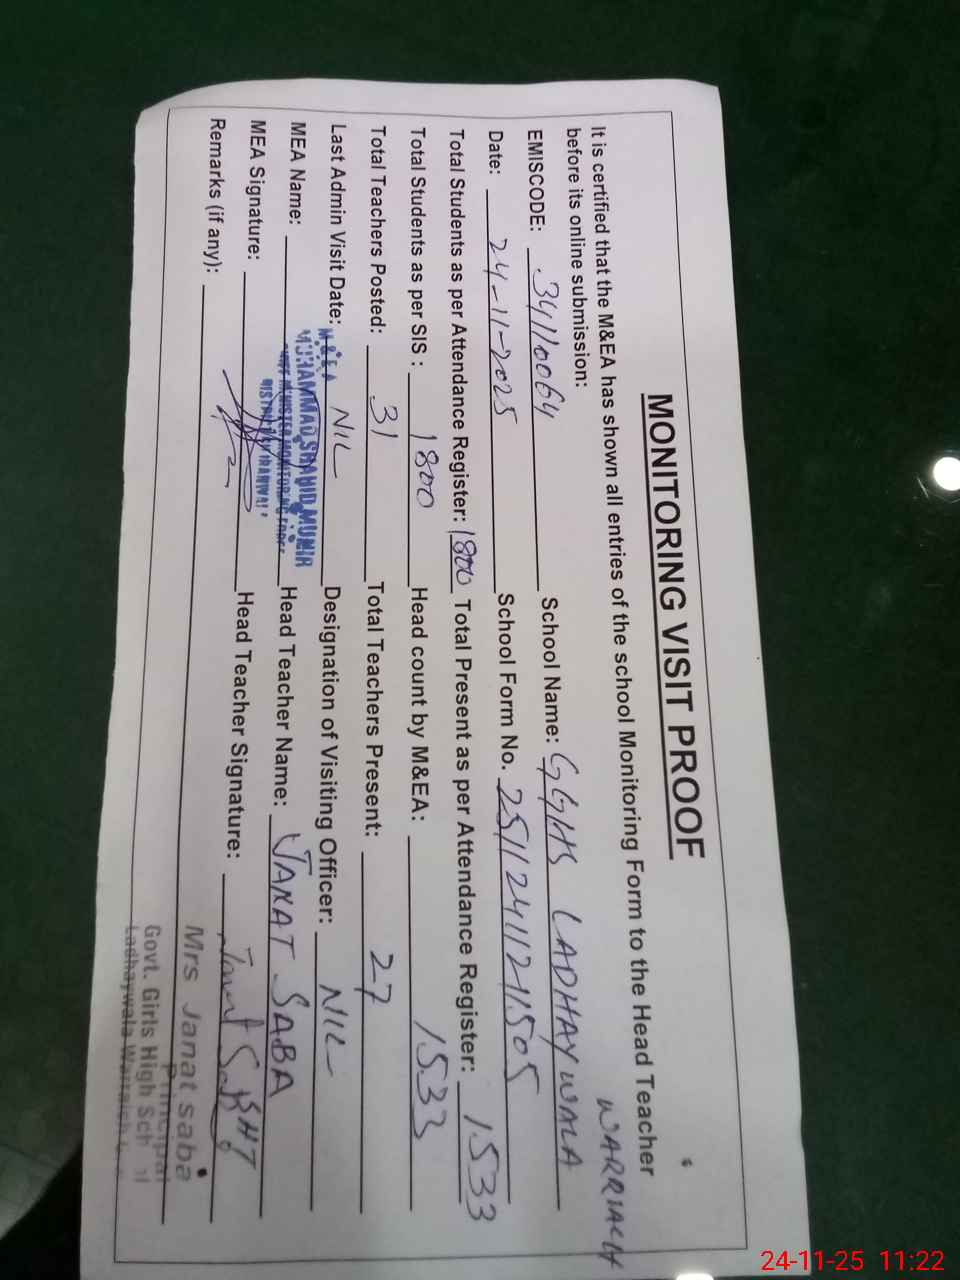 MONITORING VISIT PROOF
It is certified that the M&EA has shown all entries of the school Monitoring Form to the Head Teacher
before its online submission:
WARRIACH
EMISCODE: 34110064 School Name: GGHS LADHAYWALA
Date: 24-11-2025 School Form No. 25112411211505
Total Students as per Attendance Register: 1800 Total Present as per Attendance Register: 1533
Total Students as per SIS : 1800 Head count by M&EA: 1533
Total Teachers Posted: 31 Total Teachers Present: 27
Last Admin Visit Date: NIL Designation of Visiting Officer: NIL
M&EA
MEA Name: MUHAMMAD SHAHID MUNIR Head Teacher Name: JANAT SABA
CHIEF MINISTER MONITORING FORCE
MEA Signature: Head Teacher Signature: SHT
Remarks (if any):
Mrs Janat saba
Principal
Govt. Girls High
Ladhaywala Warraich
24-11-25 11:22